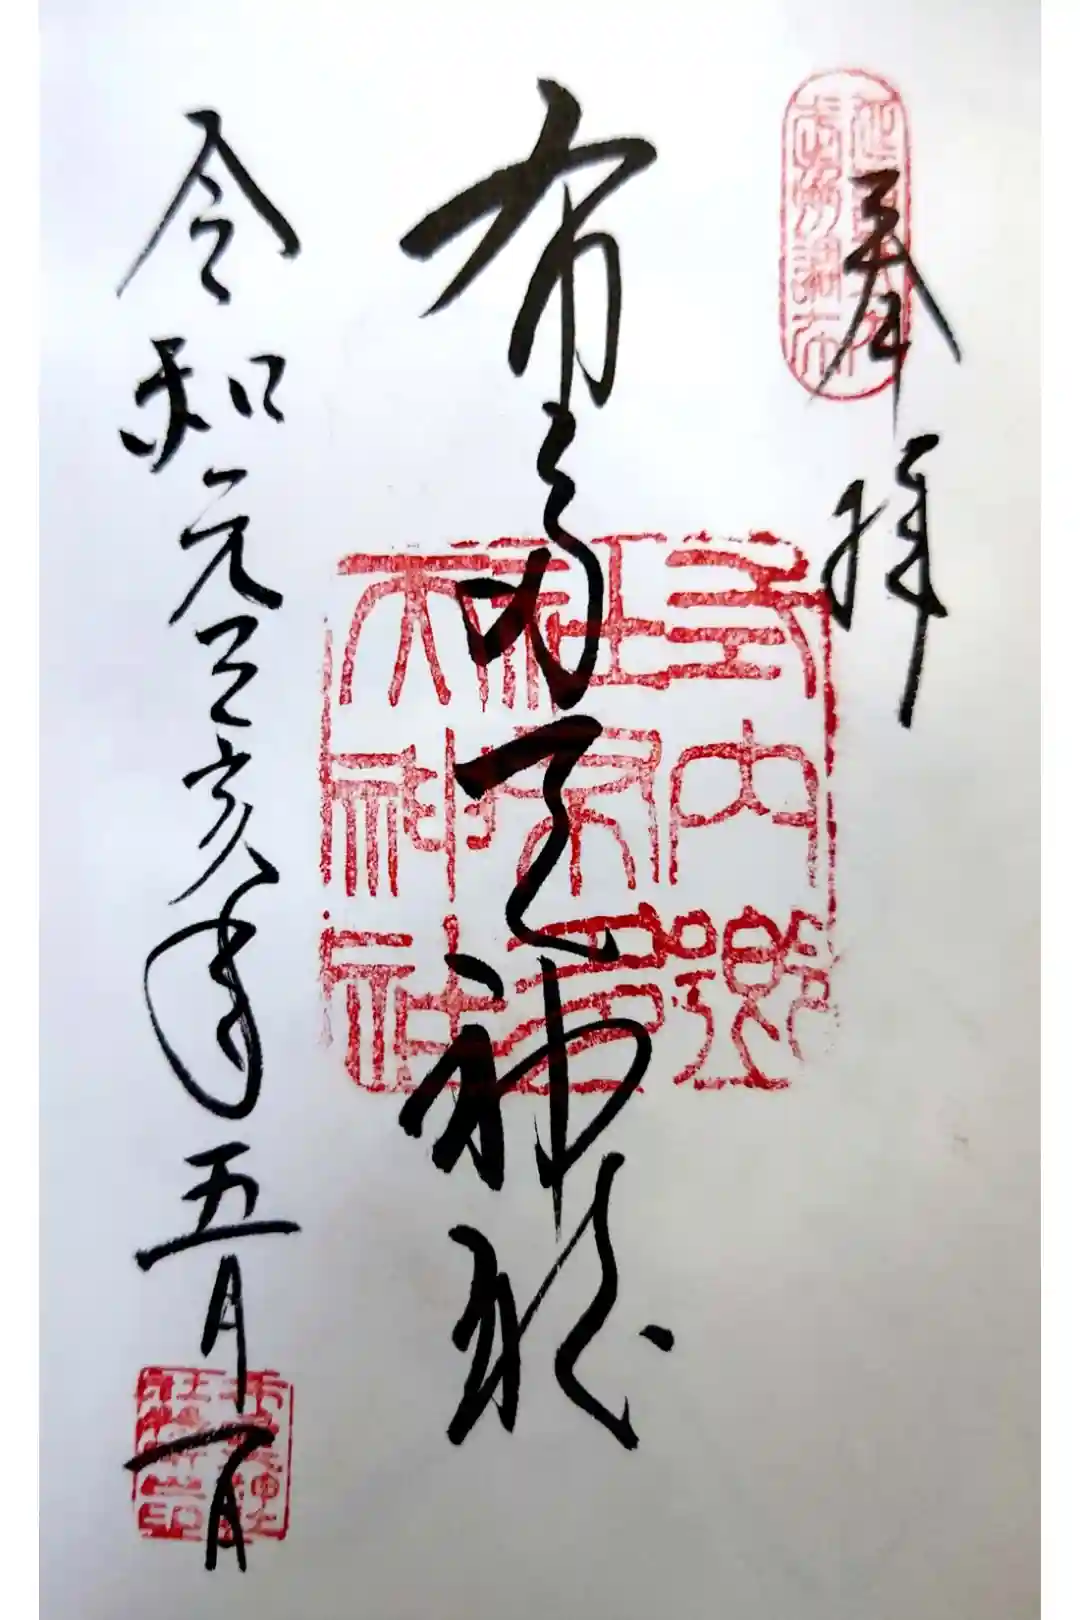 奉拝
布多天神
令和元己亥年五月一日
式内郷
社布多
天神社
武州調布